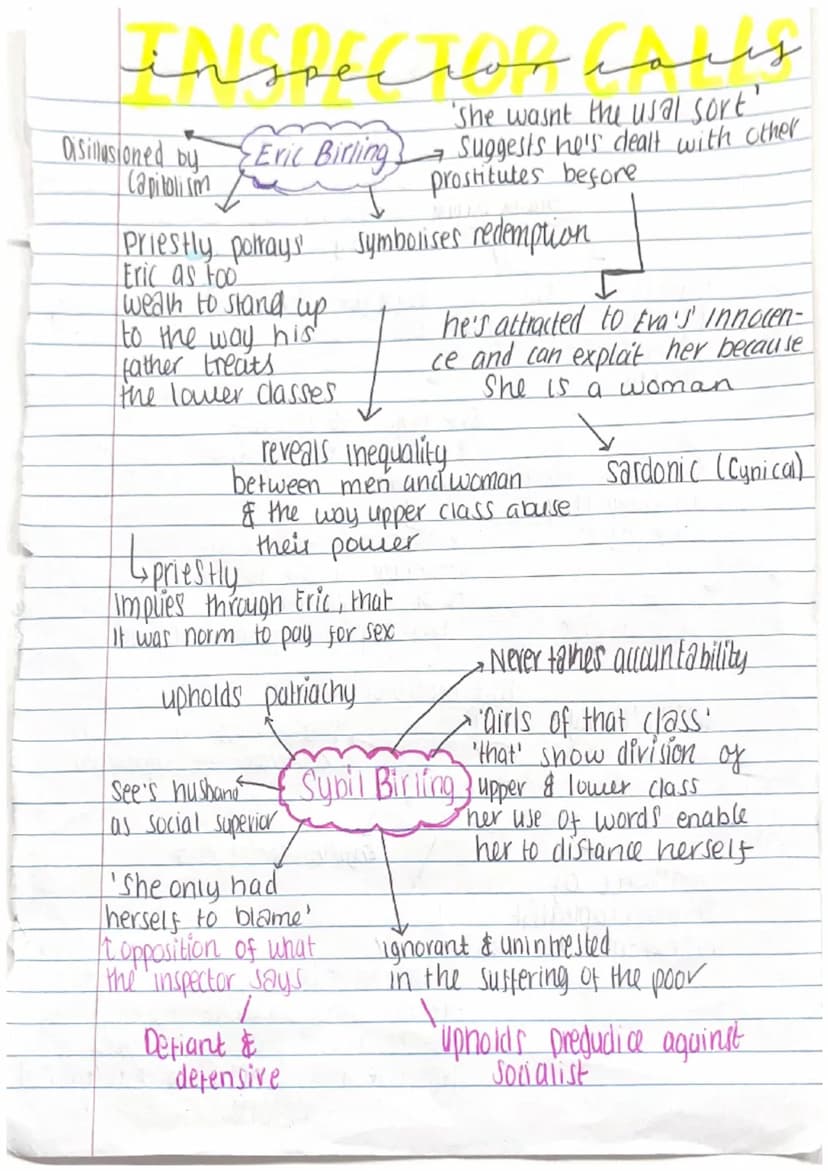 INSPECTOR CALLS
inspector calls
Eric Birling
Disillusioned by
Capitolism
'She wasnt the usal sort'
Suggests he's dealt with other
prostitutes before
Priestly potrays
Eric as too
weak to stand up
to the way his
father treats
the lower classes
Symbolises redemption
he's attracted to Eva's' innocen-
ce and can exploit her because
She is a woman
Sardonic (Cynical)
reveals inequality
between men and woman
& the way upper class abuse
their power
priestly
Implies through Eric, that
it was norm to pay for sex
Never takes accountability
upholds patriachy
'Girls of that class'
'that' show division of
upper & lower class
her use of words enable
her to distance herself
Sybil Birling
See's husband
as social superior
'She only had
herself to blame'
↑ opposition of what
the inspector says
Defiant &
defensive
ignorant & unintrested
in the suffering of the poor
Upholds predudice against
socialist